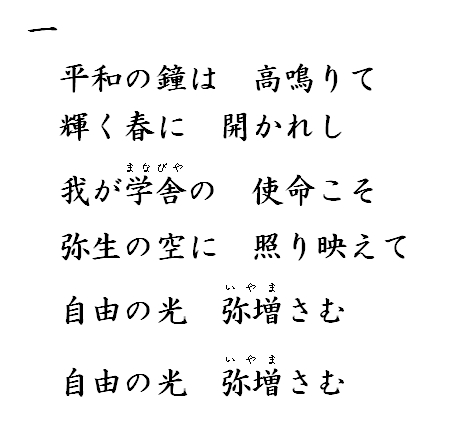 一
平和の鐘は　高鳴りて
輝く春に　開かれし
まなびや
我が学舎の　使命こそ
弥生の空に　照り映えて
いやま
自由の光　弥増さむ
いやま
自由の光　弥増さむ